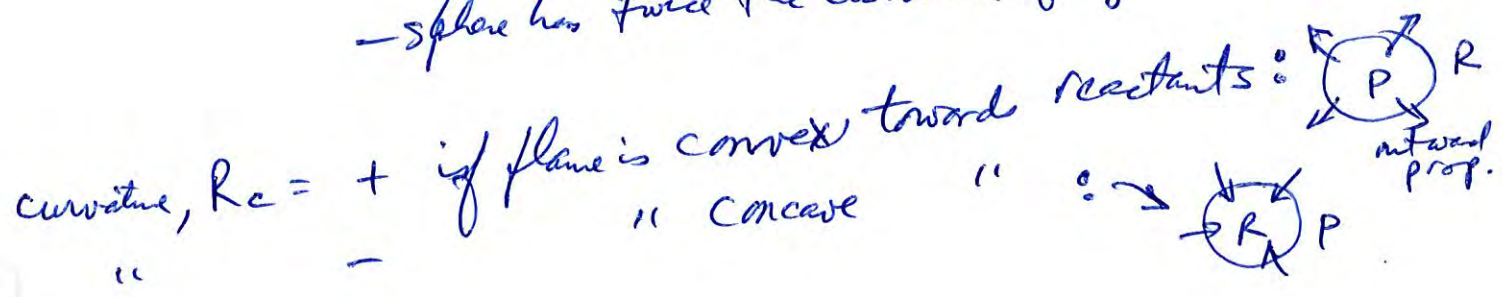 - sphere has twice the
curvature, Rc = + if flame is convex towards reactants : P R
outward prop.
" - " concave " : R P